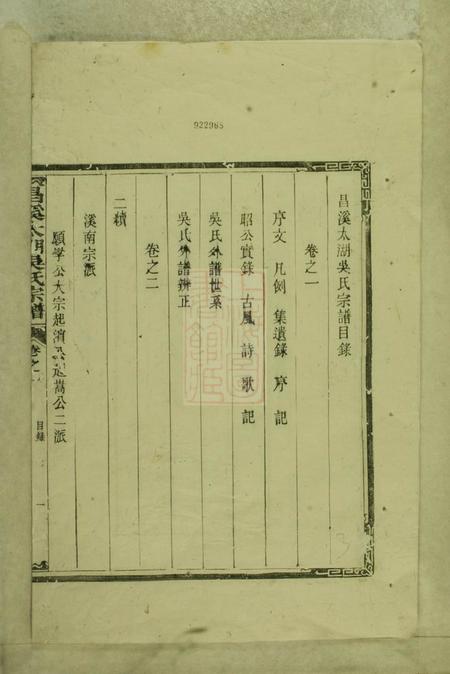 922985
昌溪太湖吳氏宗譜目錄
卷之一
序文 凡例 集遺錄 序 記
昭公實錄 古風 詩 歌 記
吳氏外譜世系
吳氏外譜辨正
卷之二
二續
溪南宗派
願學公大宗起濱公起嵩公二派
昌溪太湖吳氏宗譜
卷之一
目錄
一
3